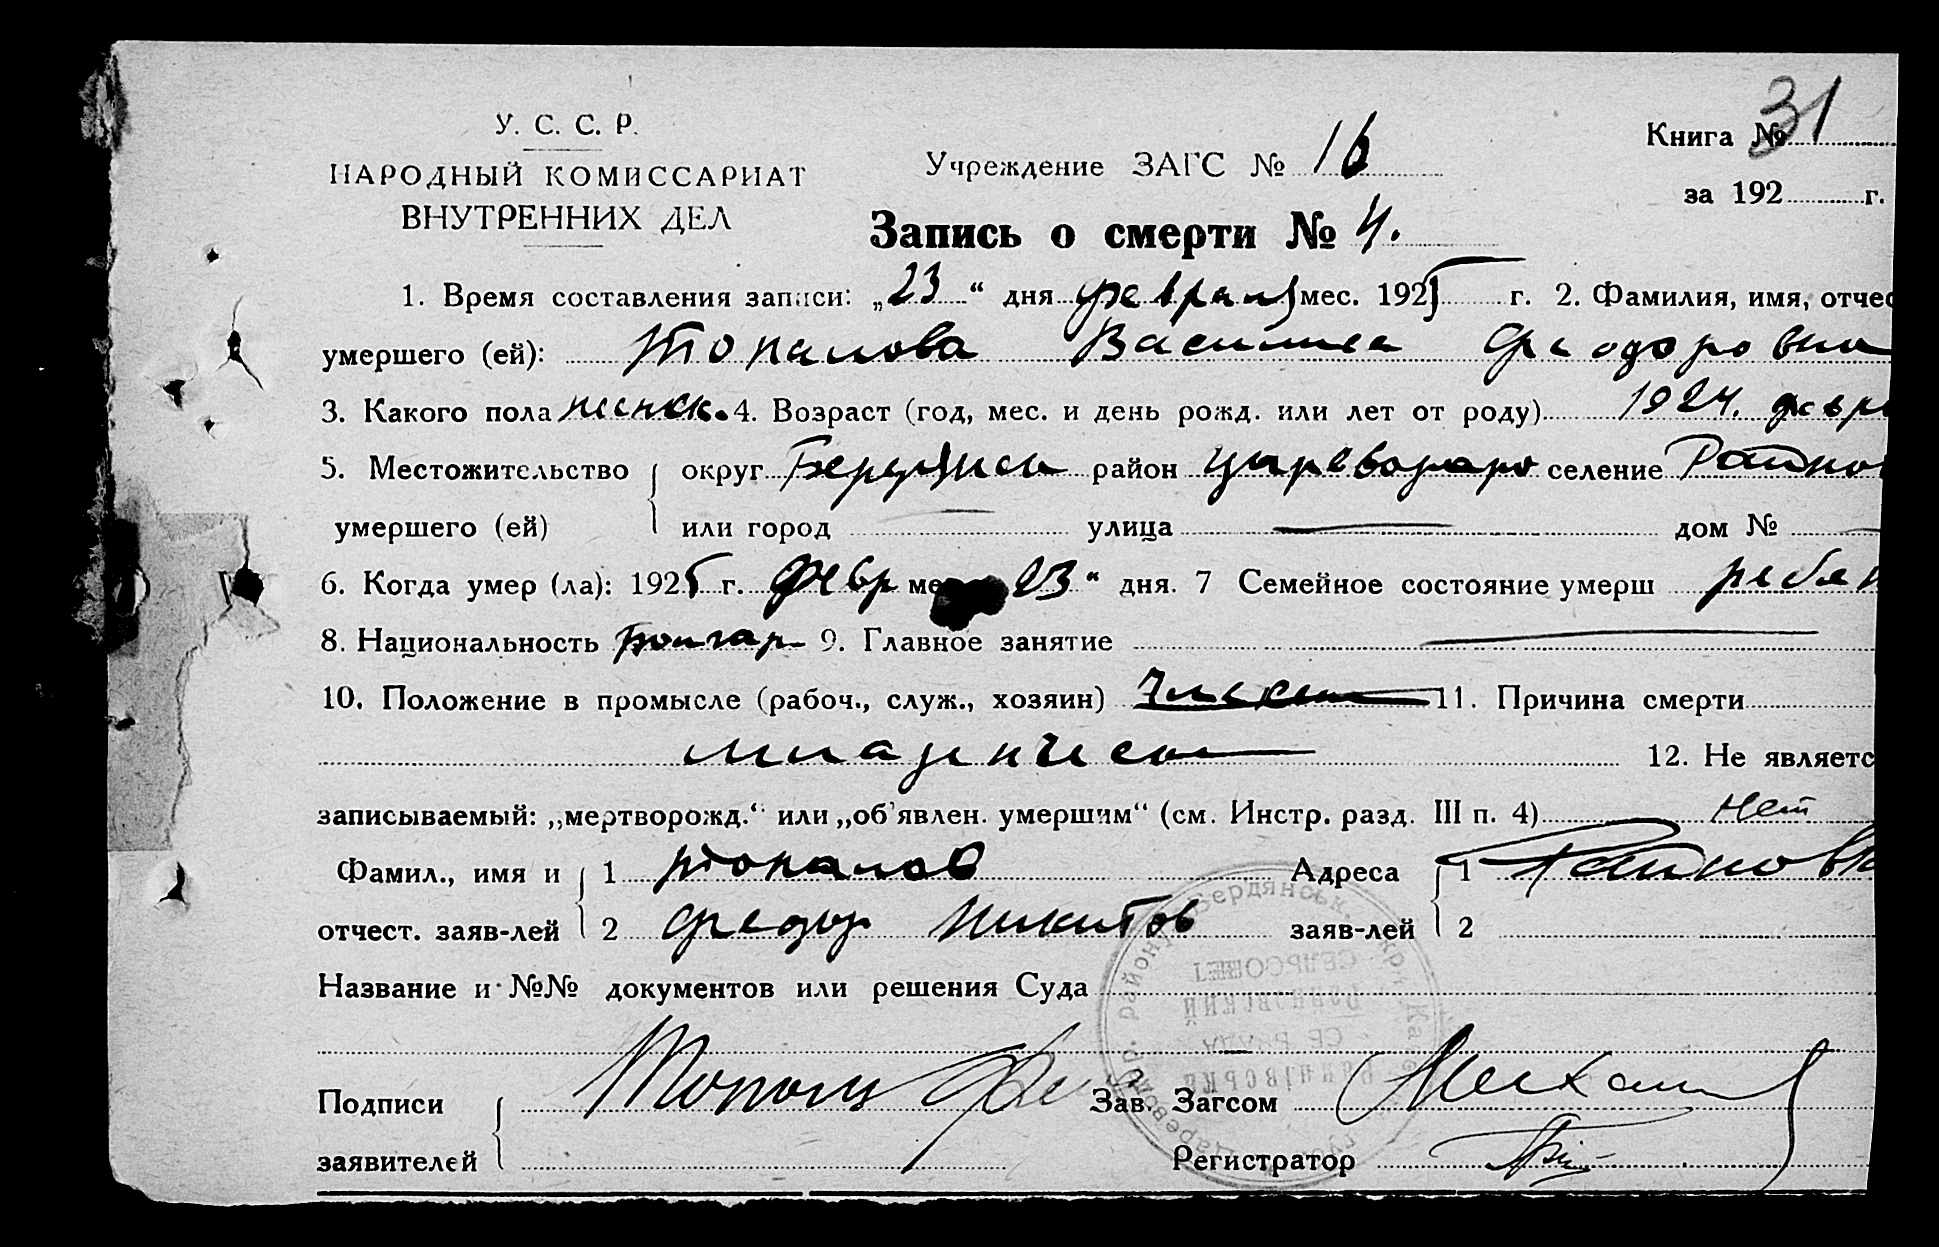 У. С. С. Р.
НАРОДНЫЙ КОМИССАРИАТ
ВНУТРЕННИХ ДЕЛ
Учреждение ЗАГС № 16
Книга № 31
за 192 г.
Запись о смерти № 4.
1. Время составления записи: „23“ дня февраля мес. 1925 г. 2. Фамилия, имя, отчес
умершего (ей): Топалова Василиса Феодоровна
3. Какого пола женск. 4. Возраст (год, мес. и день рожд. или лет от роду) 1924. февр
5. Местожительство округ район селение
умершего (ей) или город улица дом №
6. Когда умер (ла): 1925 г. февр ме 23“ дня. 7 Семейное состояние умерш ребен
8. Национальность Болгар 9. Главное занятие
10. Положение в промысле (рабоч., служ., хозяин) 11. Причина смерти
12. Не являетс
записываемый: „мертворожд.“ или „об'явлен. умершим“ (см. Инстр. разд. III п. 4) нет
Фамил., имя и 1 Топалов Адреса 1 Райновк
отчест. заяв-лей 2 Федор Никитов заяв-лей 2
Название и №№ документов или решения Суда
Подписи
Зав. Загсом
заявителей
Регистратор